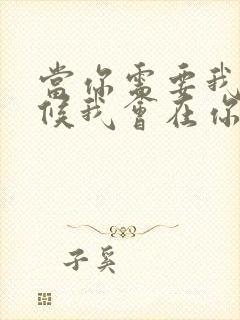 當你需要我
候我會在你
子奚